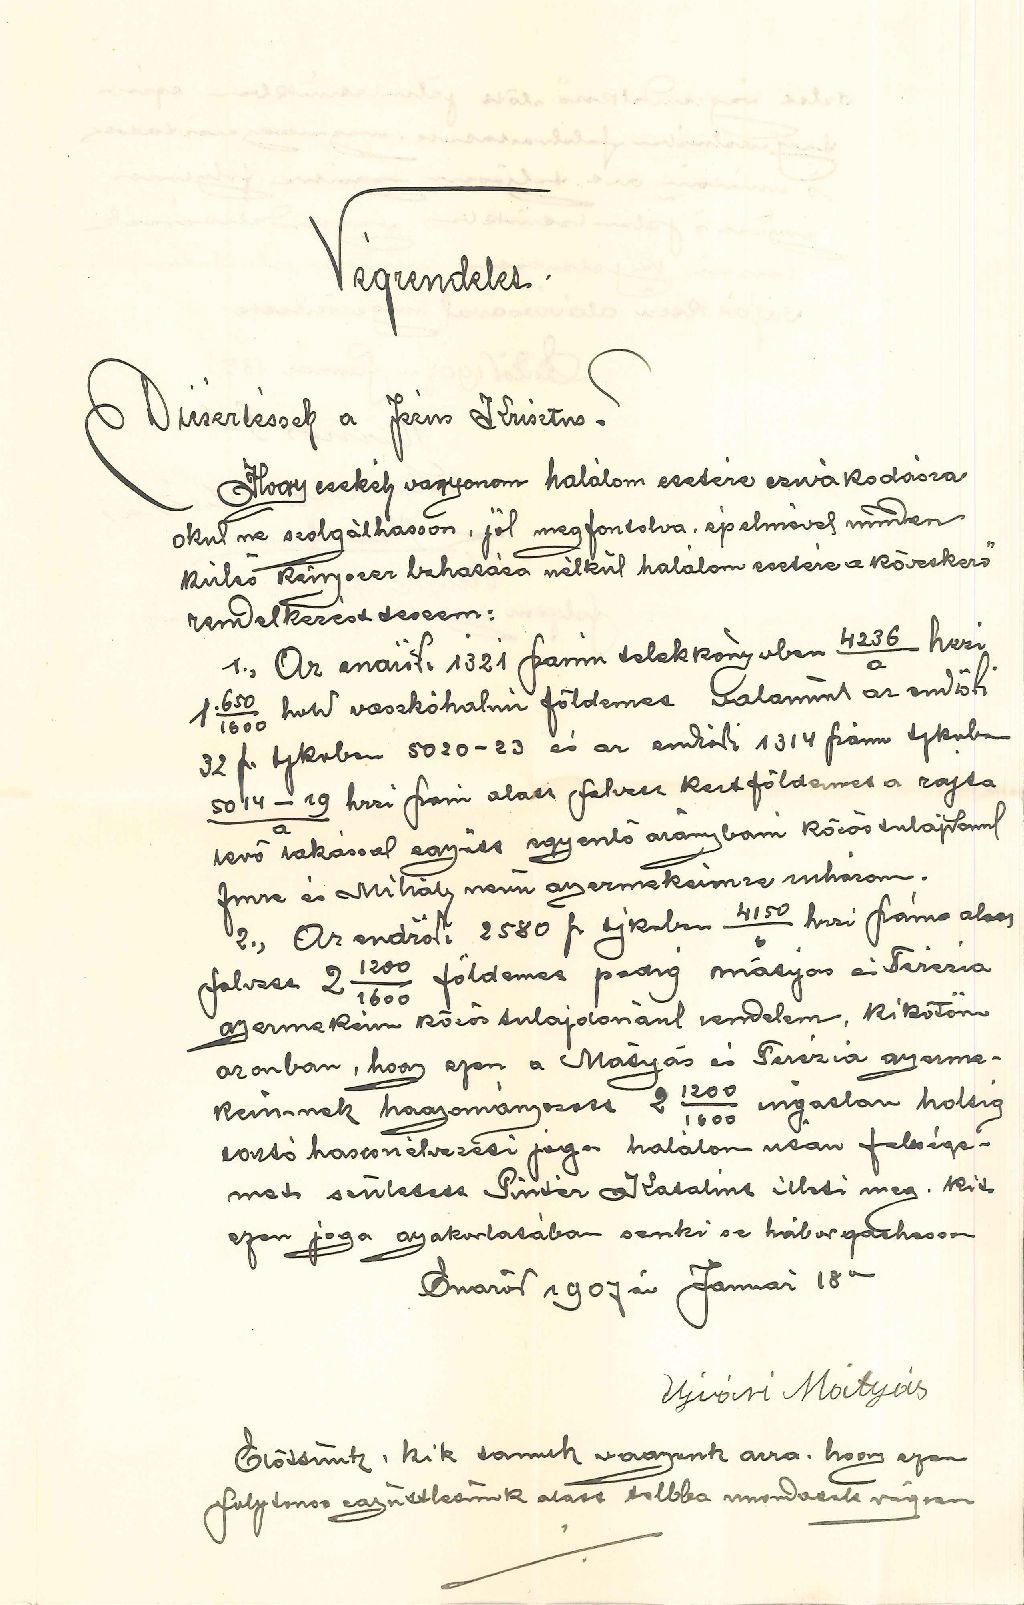 Végrendelet.
Dicsértessék a Jézus Krisztus.
Hogy csekély vagyonom halálom esetére czivakodásra
okul ne szolgálhasson, jól megfontolva, ép elmével minden
külső kényszer behatása nélkül halálom esetére a következő
rendelkezést teszem:
1., Az endrődi 1321 számu telekkönyvben 4236/a hrzi
1 650/1600 hold vaszkóhalmi földemet valamint az endrődi
32 sz. tjkvben 5020-23 és az endrődi 1314 számu tjkvben
5014-19/a hrzi szám alatt felvett kertföldemet a rajta
levő lakással együtt egyenlő arányban közös tulajdonul
Imre és Mihály nevü gyermekeimre ruházom.
2., Az endrődi 2580 sz tjkvben 4150/b hrzi számo alatt
felvett 2 1200/1600 földemet pedig Mátyás és Terézia
gyermekeim közös tulajdonául rendelem, kikötöm
azonban, hogy ezen a Mátyás és Terézia gyerme-
keimnek hagyományozott 2 1200/1600 ingatlan holtig
tartó haszonélvezeti joga halálom után feleége-
met született Pintér Katalint illeti meg. kit
ezen joga gyakorlatában senki se háborgathasson
Endrőd 1907 év Januar 18án
Ujvári Mátyás
Előttünk, kik tanuk vagyunk arra, hogy ezen
folytonos együttlétünk alatt tollba mondatott végren